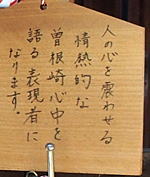 人の心を震わせる
情熱的な
曽根崎心中を
語る表現者に
なります。